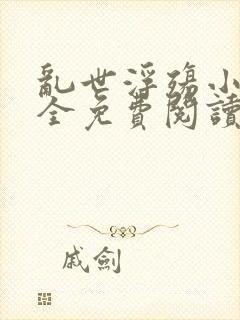 亂世浮殤小
全免費閱讀
戚劍